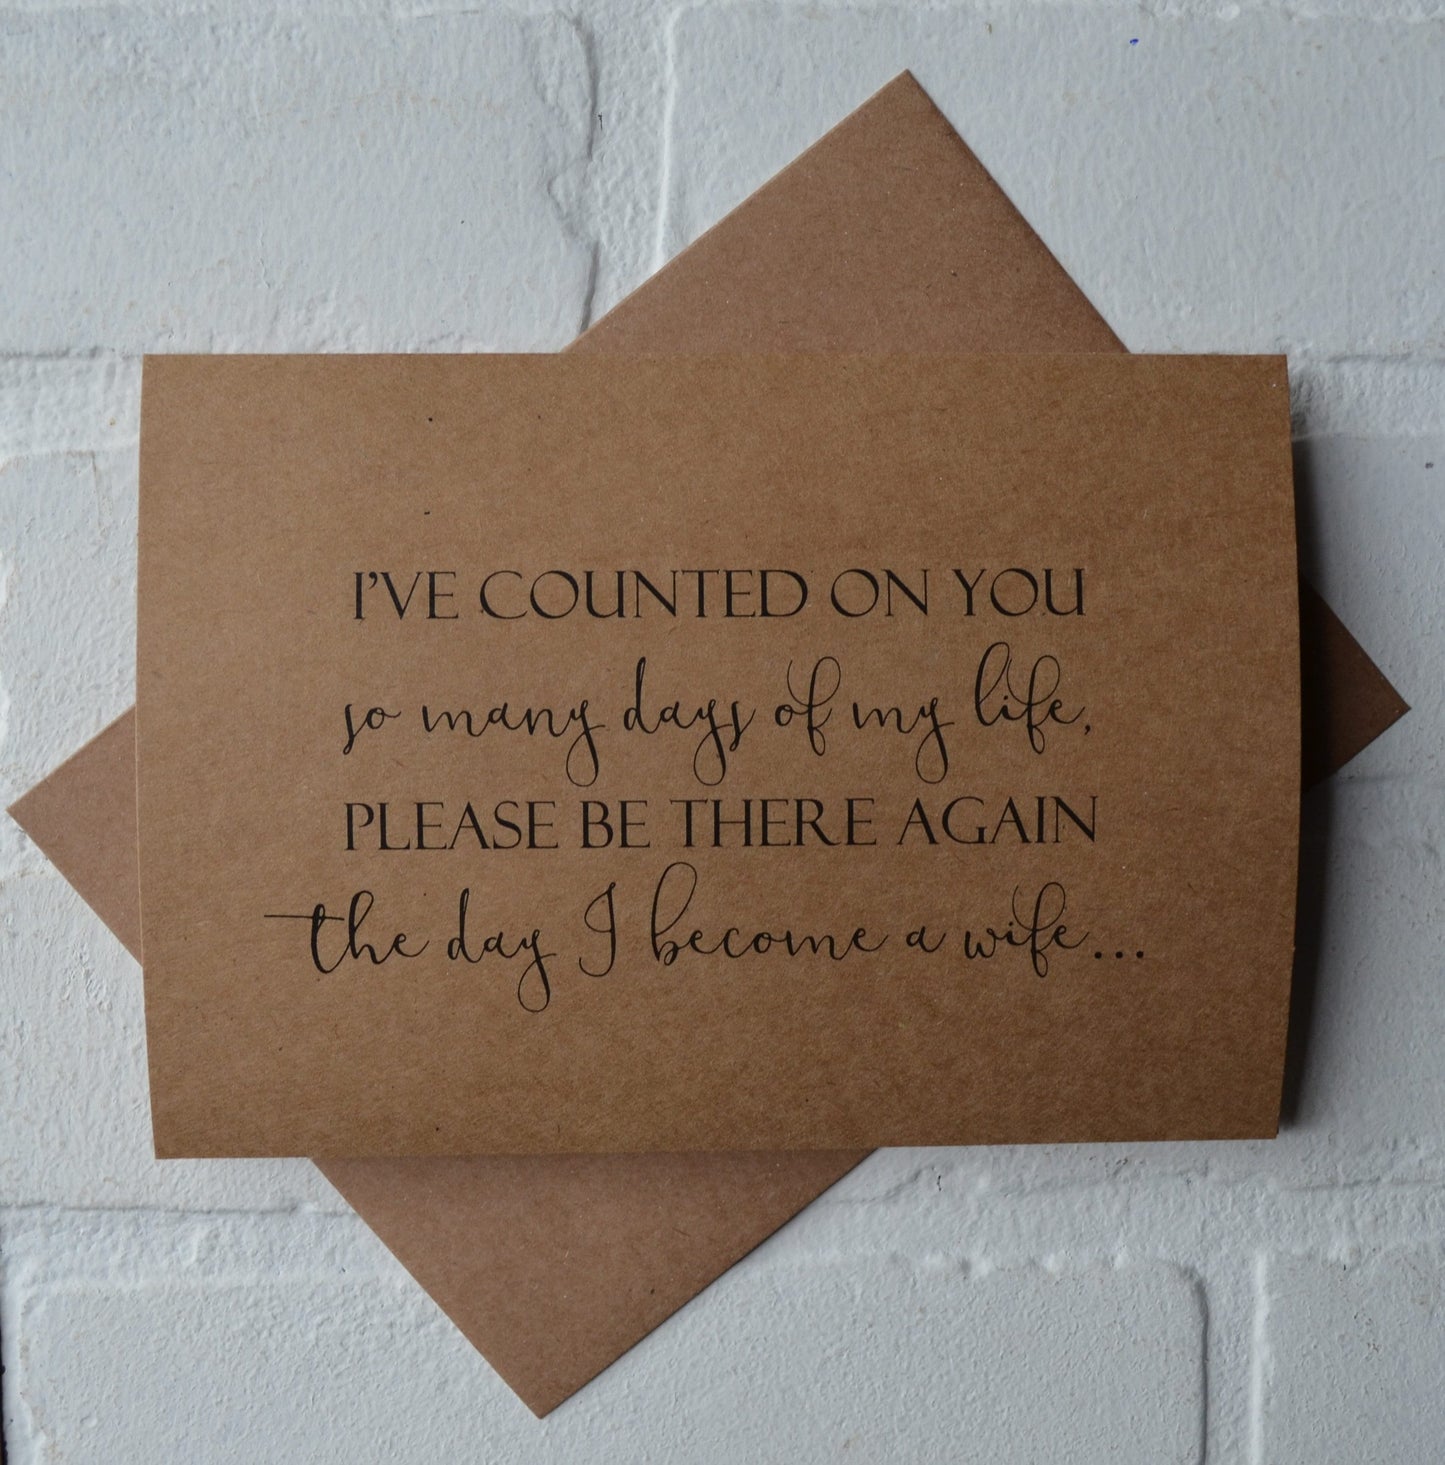 I'VE COUNTED ON YOU
so many days of my life,
PLEASE BE THERE AGAIN
the day I become a wife...